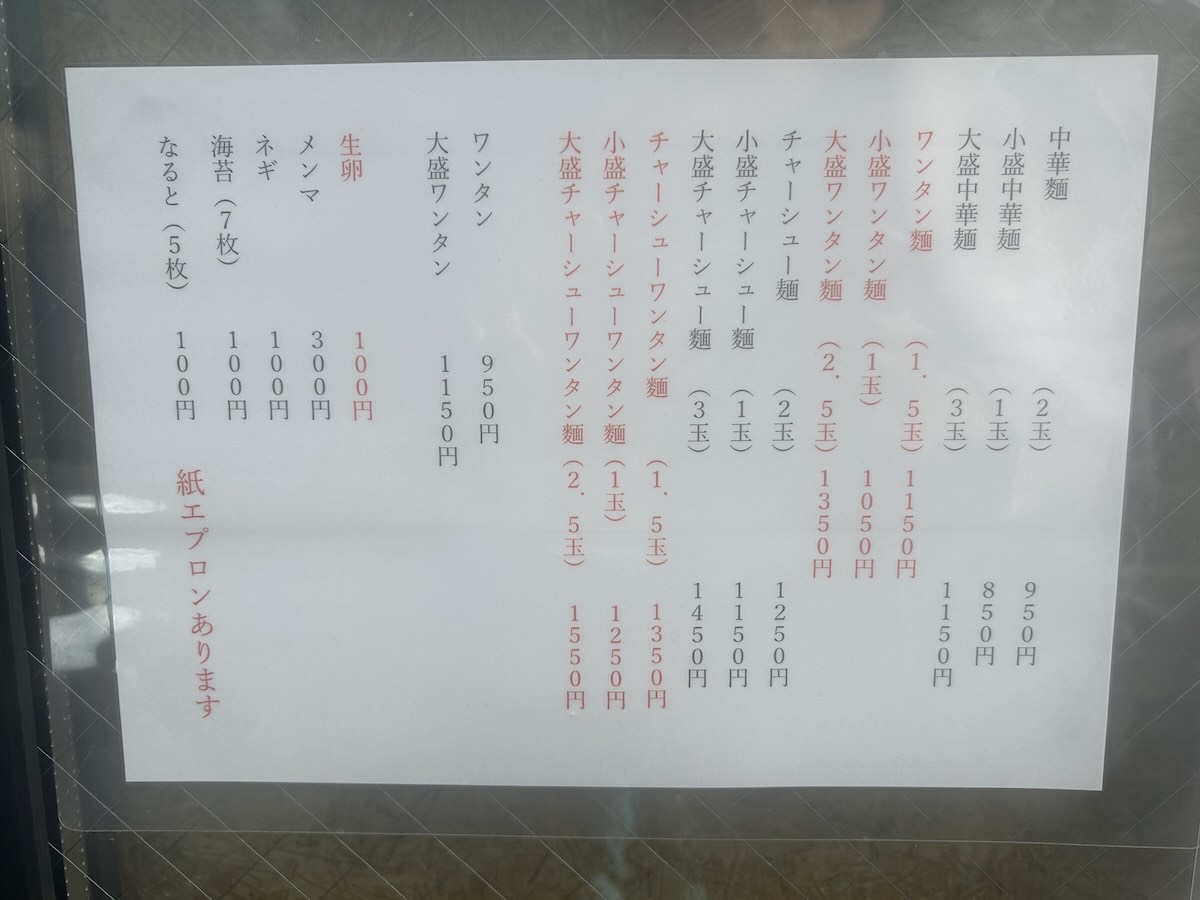 中華麵 （2玉） 950円
小盛中華麵 （1玉） 850円
大盛中華麵 （3玉） 1150円
ワンタン麵 （1．5玉） 1150円
小盛ワンタン麵 （1玉） 1050円
大盛ワンタン麵 （2．5玉） 1350円
チャーシュー麵 （2玉） 1250円
小盛チャーシュー麵 （1玉） 1150円
大盛チャーシュー麵 （3玉） 1450円
チャーシューワンタン麵 （1．5玉） 1350円
小盛チャーシューワンタン麵 （1玉） 1250円
大盛チャーシューワンタン麵 （2．5玉） 1550円
ワンタン 950円
大盛ワンタン 1150円
生卵 100円
メンマ 300円
ネギ 100円
海苔（7枚） 100円
なると（5枚） 100円
紙エプロンあります